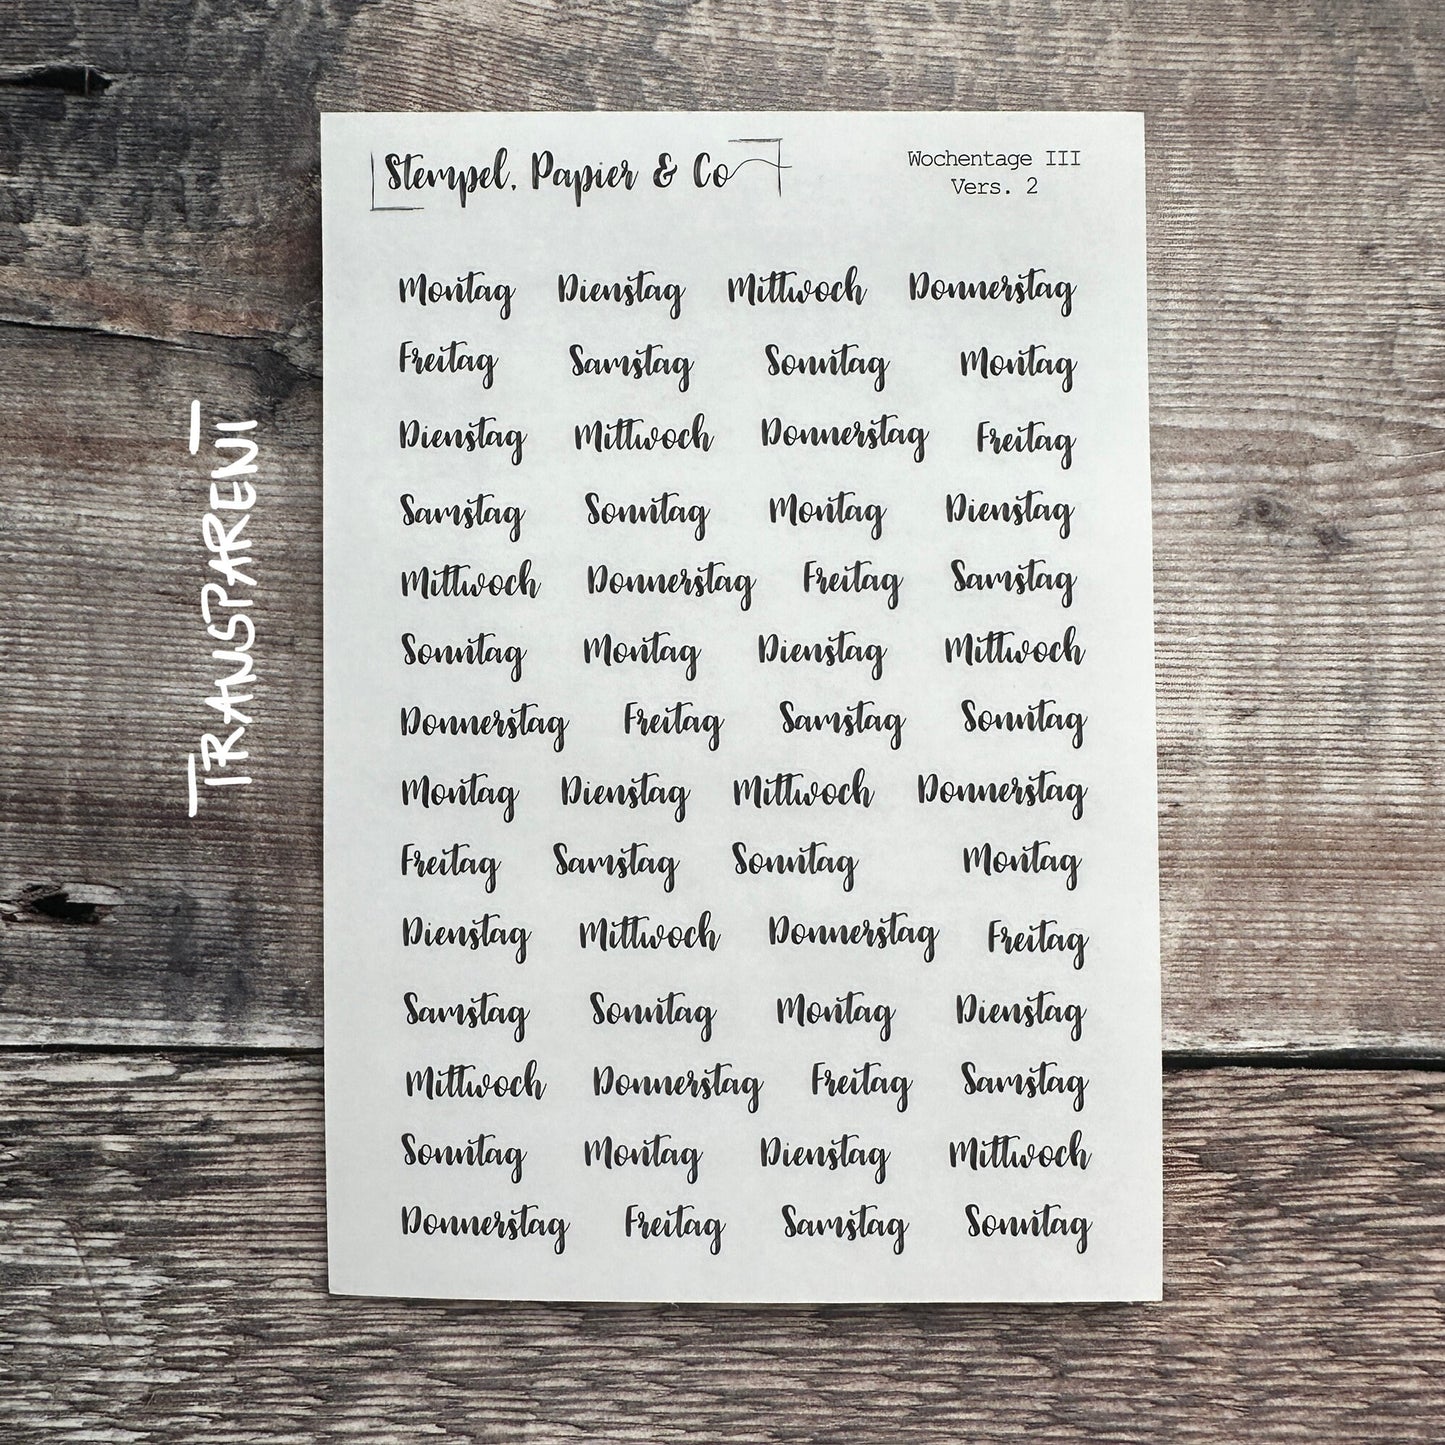 Stempel, Papier & Co
Wochentage III
Vers. 2
Montag Dienstag Mittwoch Donnerstag
Freitag Samstag Sonntag Montag
Dienstag Mittwoch Donnerstag Freitag
Samstag Sonntag Montag Dienstag
Mittwoch Donnerstag Freitag Samstag
Sonntag Montag Dienstag Mittwoch
Donnerstag Freitag Samstag Sonntag
Montag Dienstag Mittwoch Donnerstag
Freitag Samstag Sonntag Montag
Dienstag Mittwoch Donnerstag Freitag
Samstag Sonntag Montag Dienstag
Mittwoch Donnerstag Freitag Samstag
Sonntag Montag Dienstag Mittwoch
Donnerstag Freitag Samstag Sonntag
TRANSPARENT